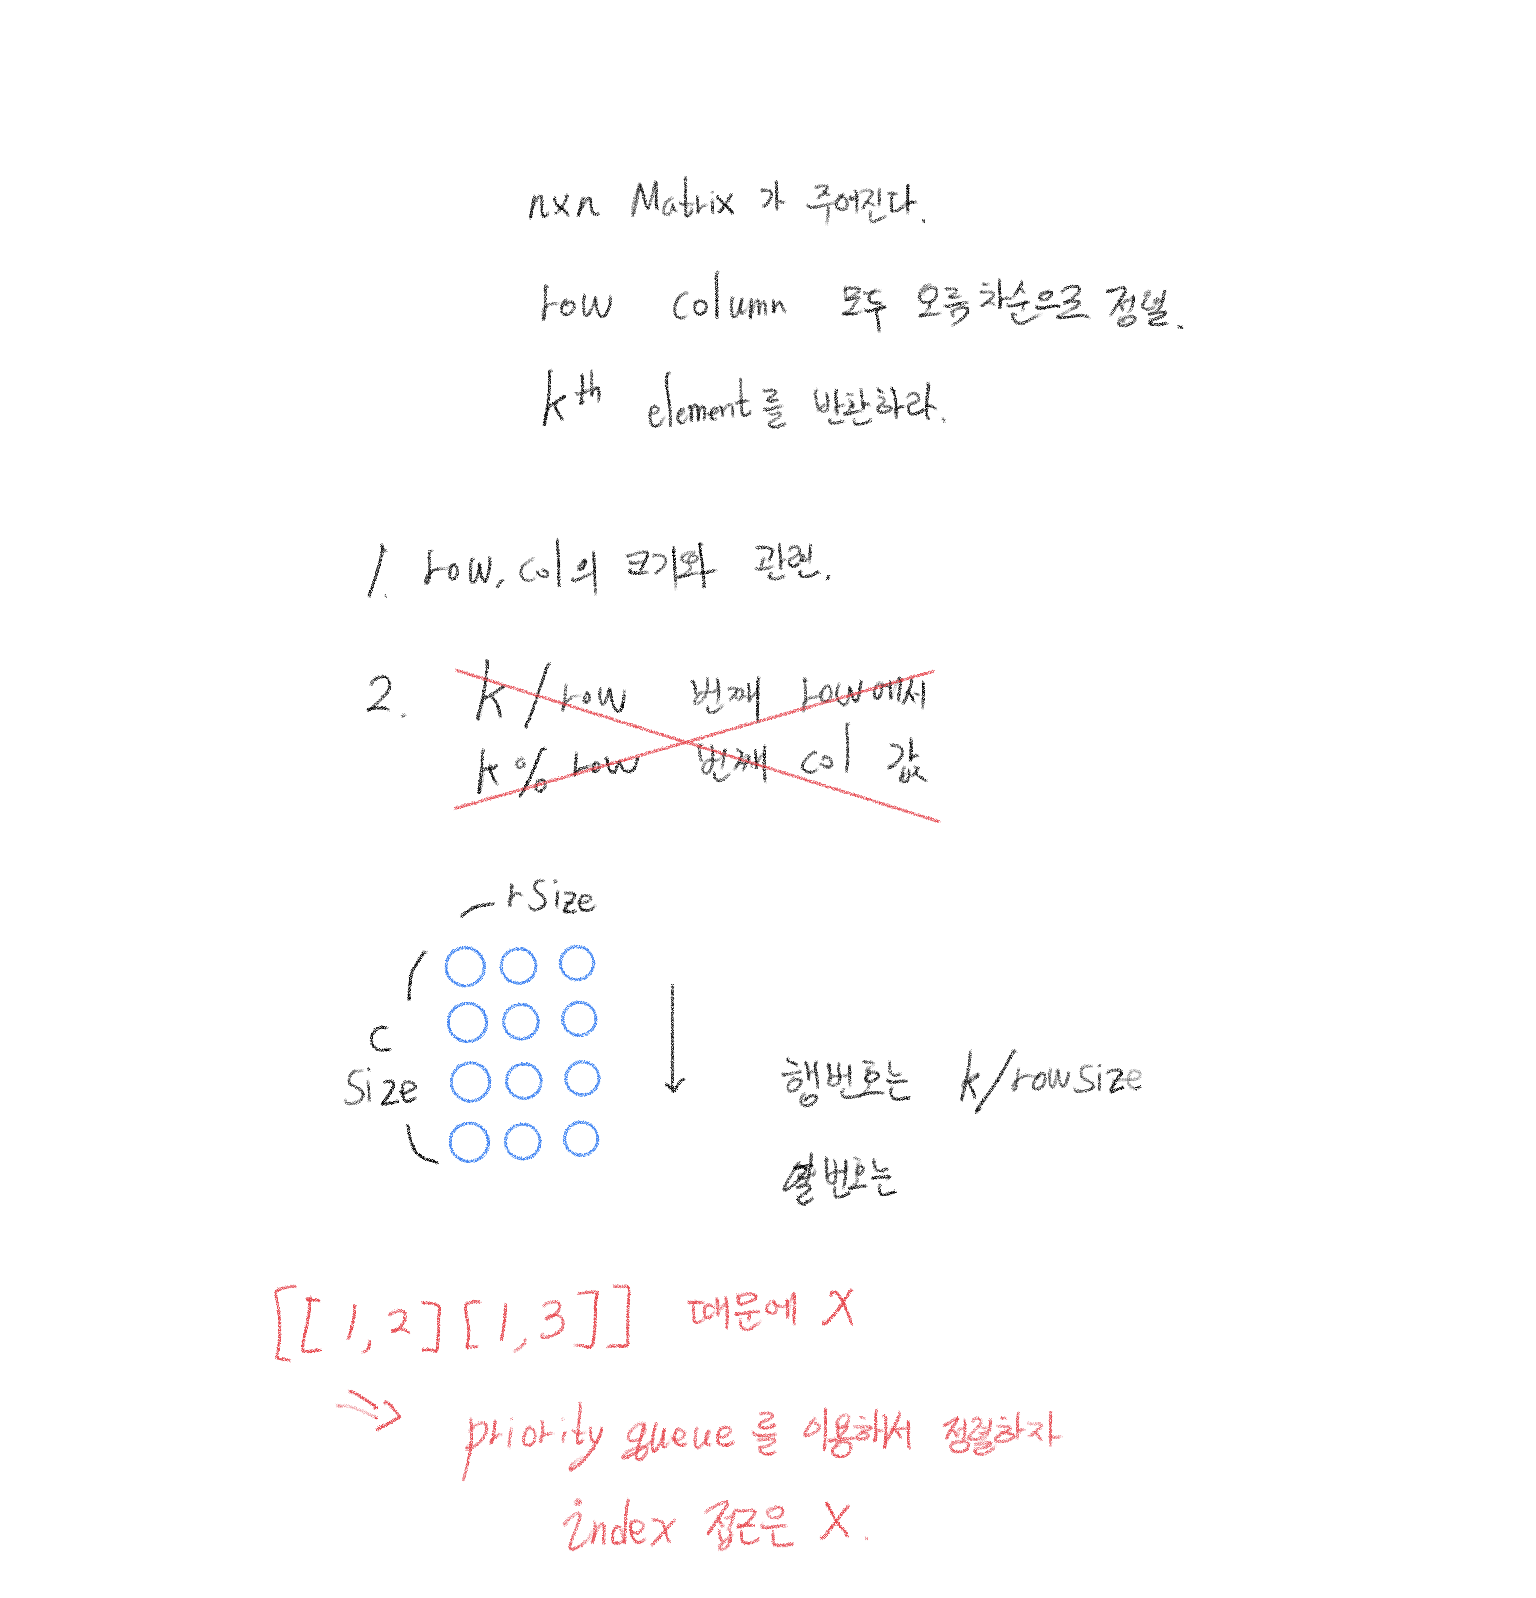 nxn Matrix 가 주어진다.
row column 모두 오름차순으로 정렬.
kth element를 반환하라.
1. row, col의 크기와 관련.
2. k/row 번째 row에서
k%row 번째 col 값
rSize
c
Size
행번호는 k/rowsize
열번호는
[[1,2][1,3]] 때문에 X
=> priority queue를 이용해서 정렬하자
index 접근은 X.